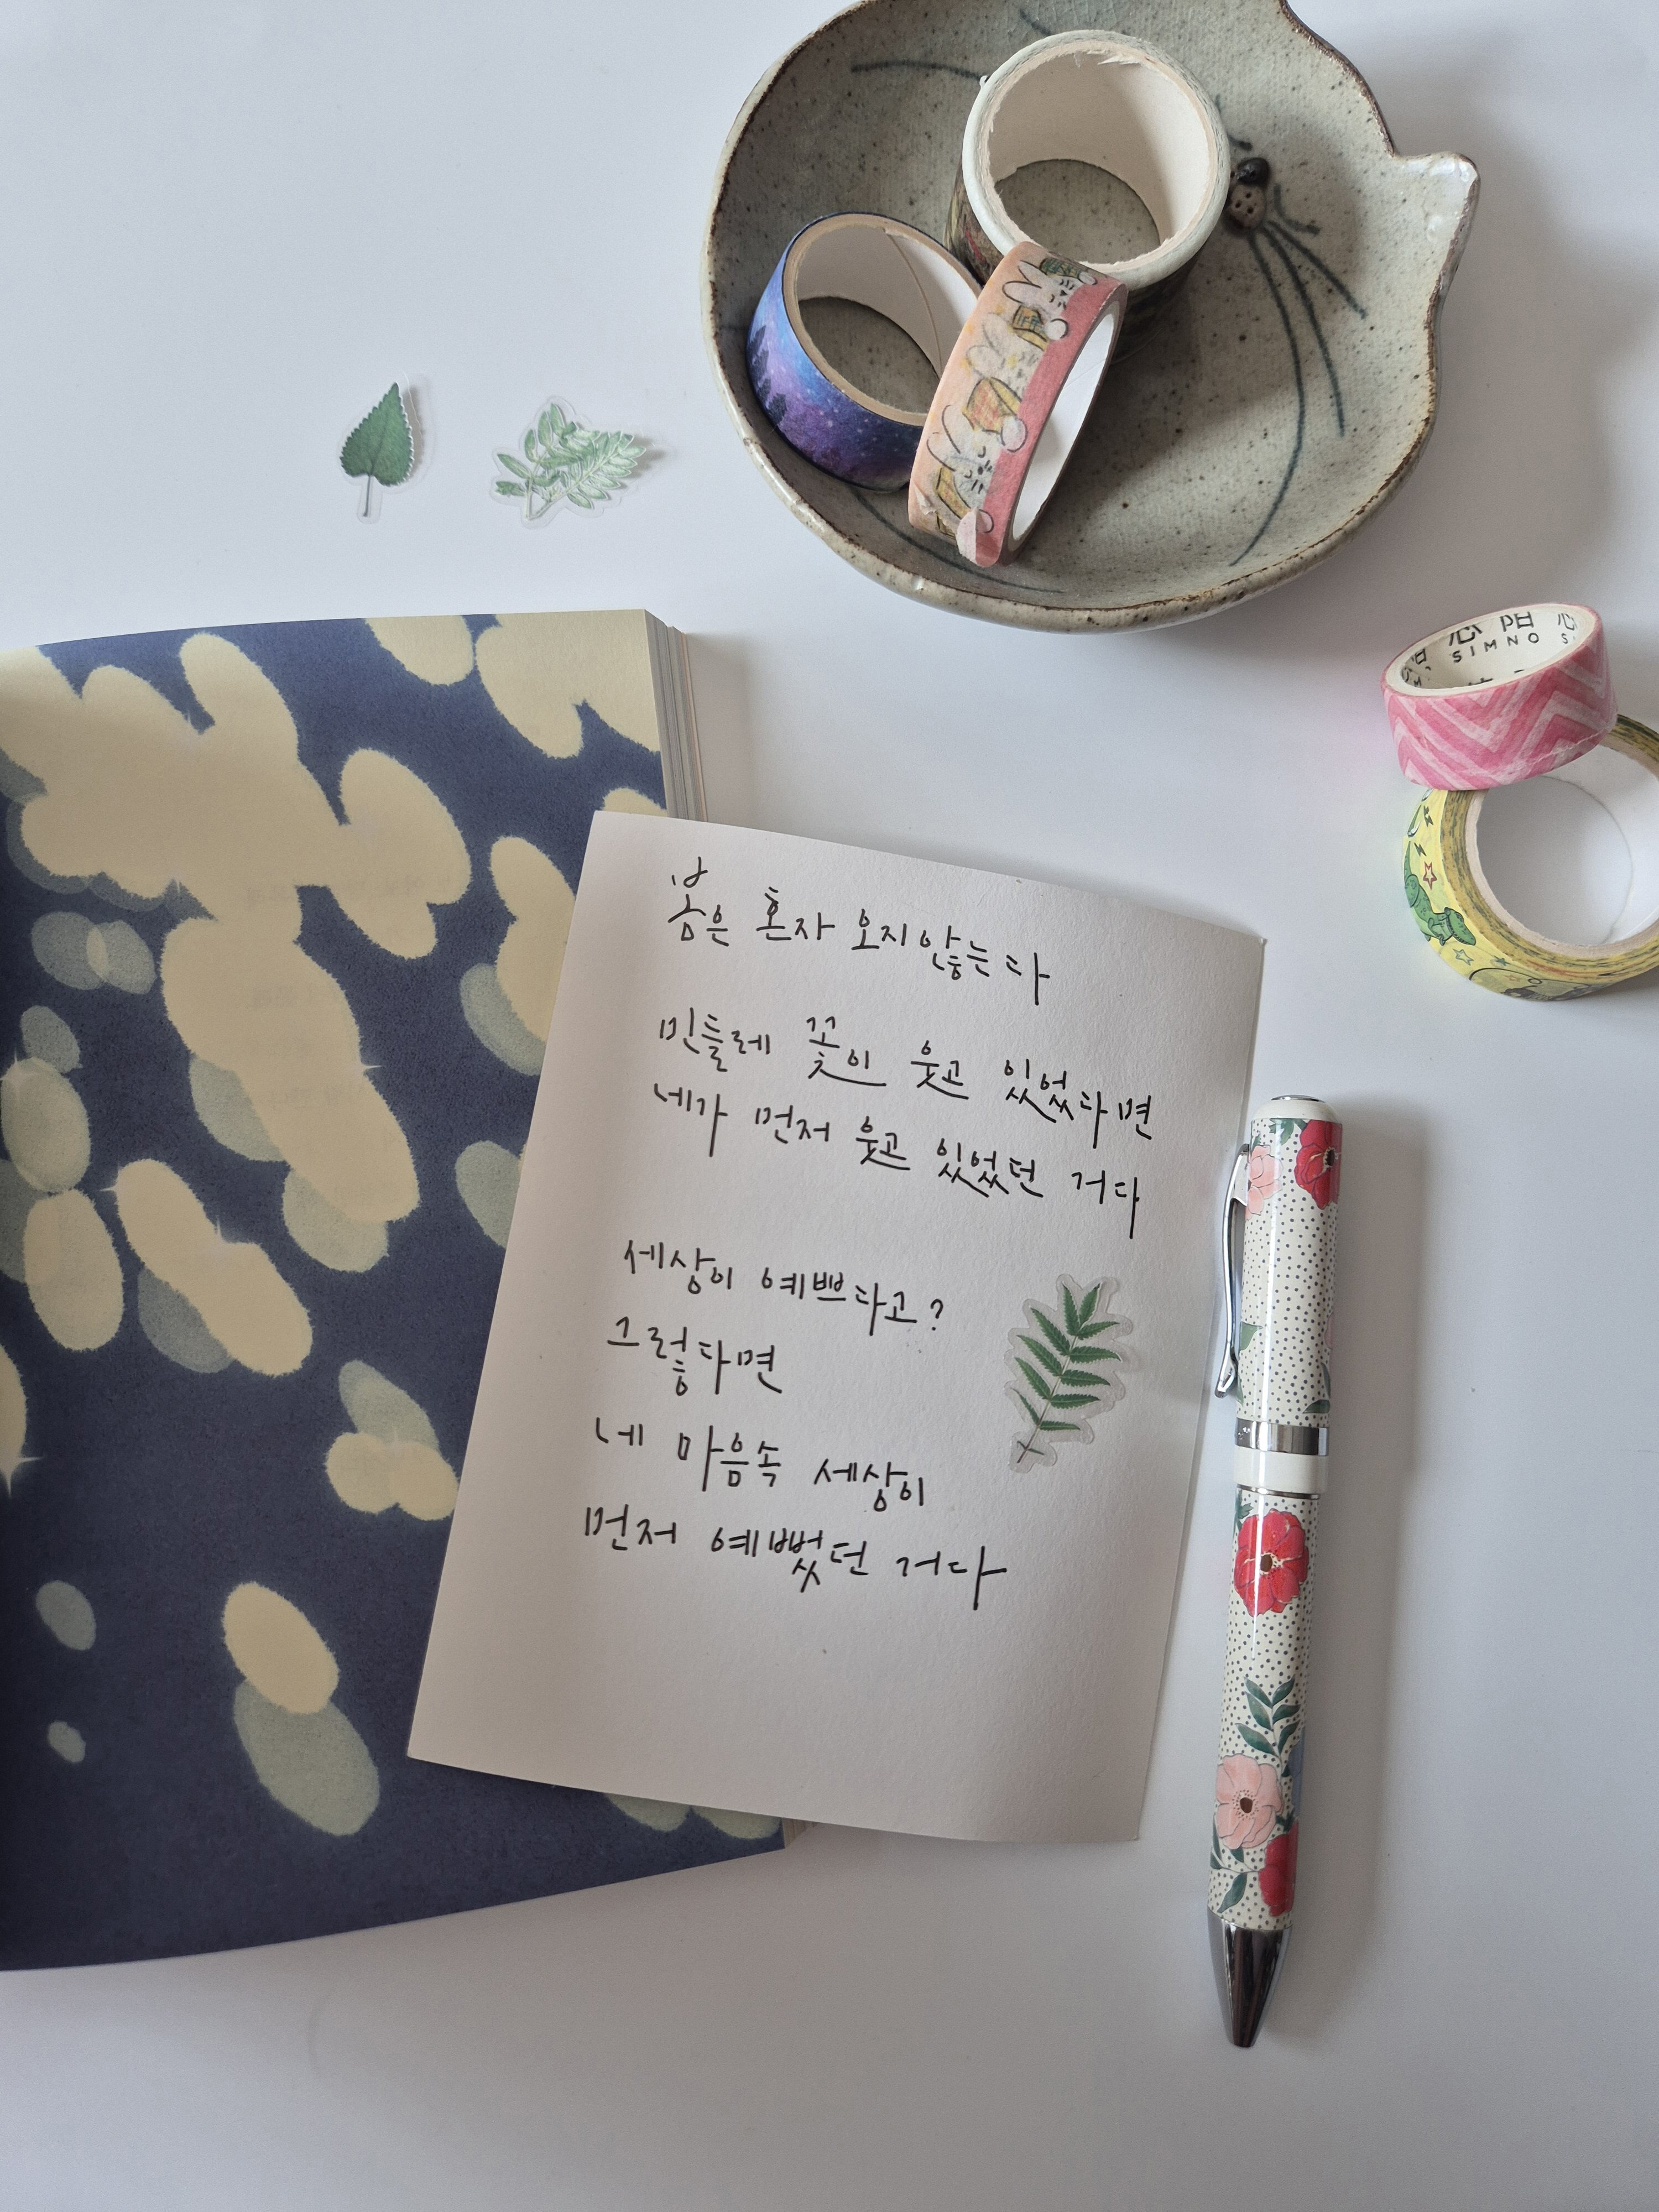 SIMNO
봄은 혼자 오지않는다
민들레 꽃이 웃고 있었다면
네가 먼저 웃고 있었던 거다
세상이 예쁘다고?
그렇다면
네 마음속 세상이
먼저 예뻤던 거다